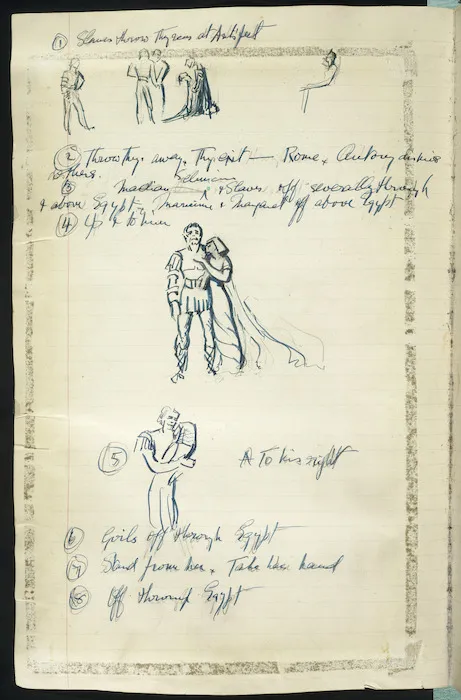 ① Slaves throw Thyreus at Ant's feet
② Throw Thy. away. Thy. exit — Rome. Antony
others.
③ & Slaves off severally through
& above Egypt. & Margaret off above Egypt
④ Up & to him
⑤ A To his right
⑥ Girls off through Egypt
⑦ Stand from her. Take her hand
⑧ Off through Egypt